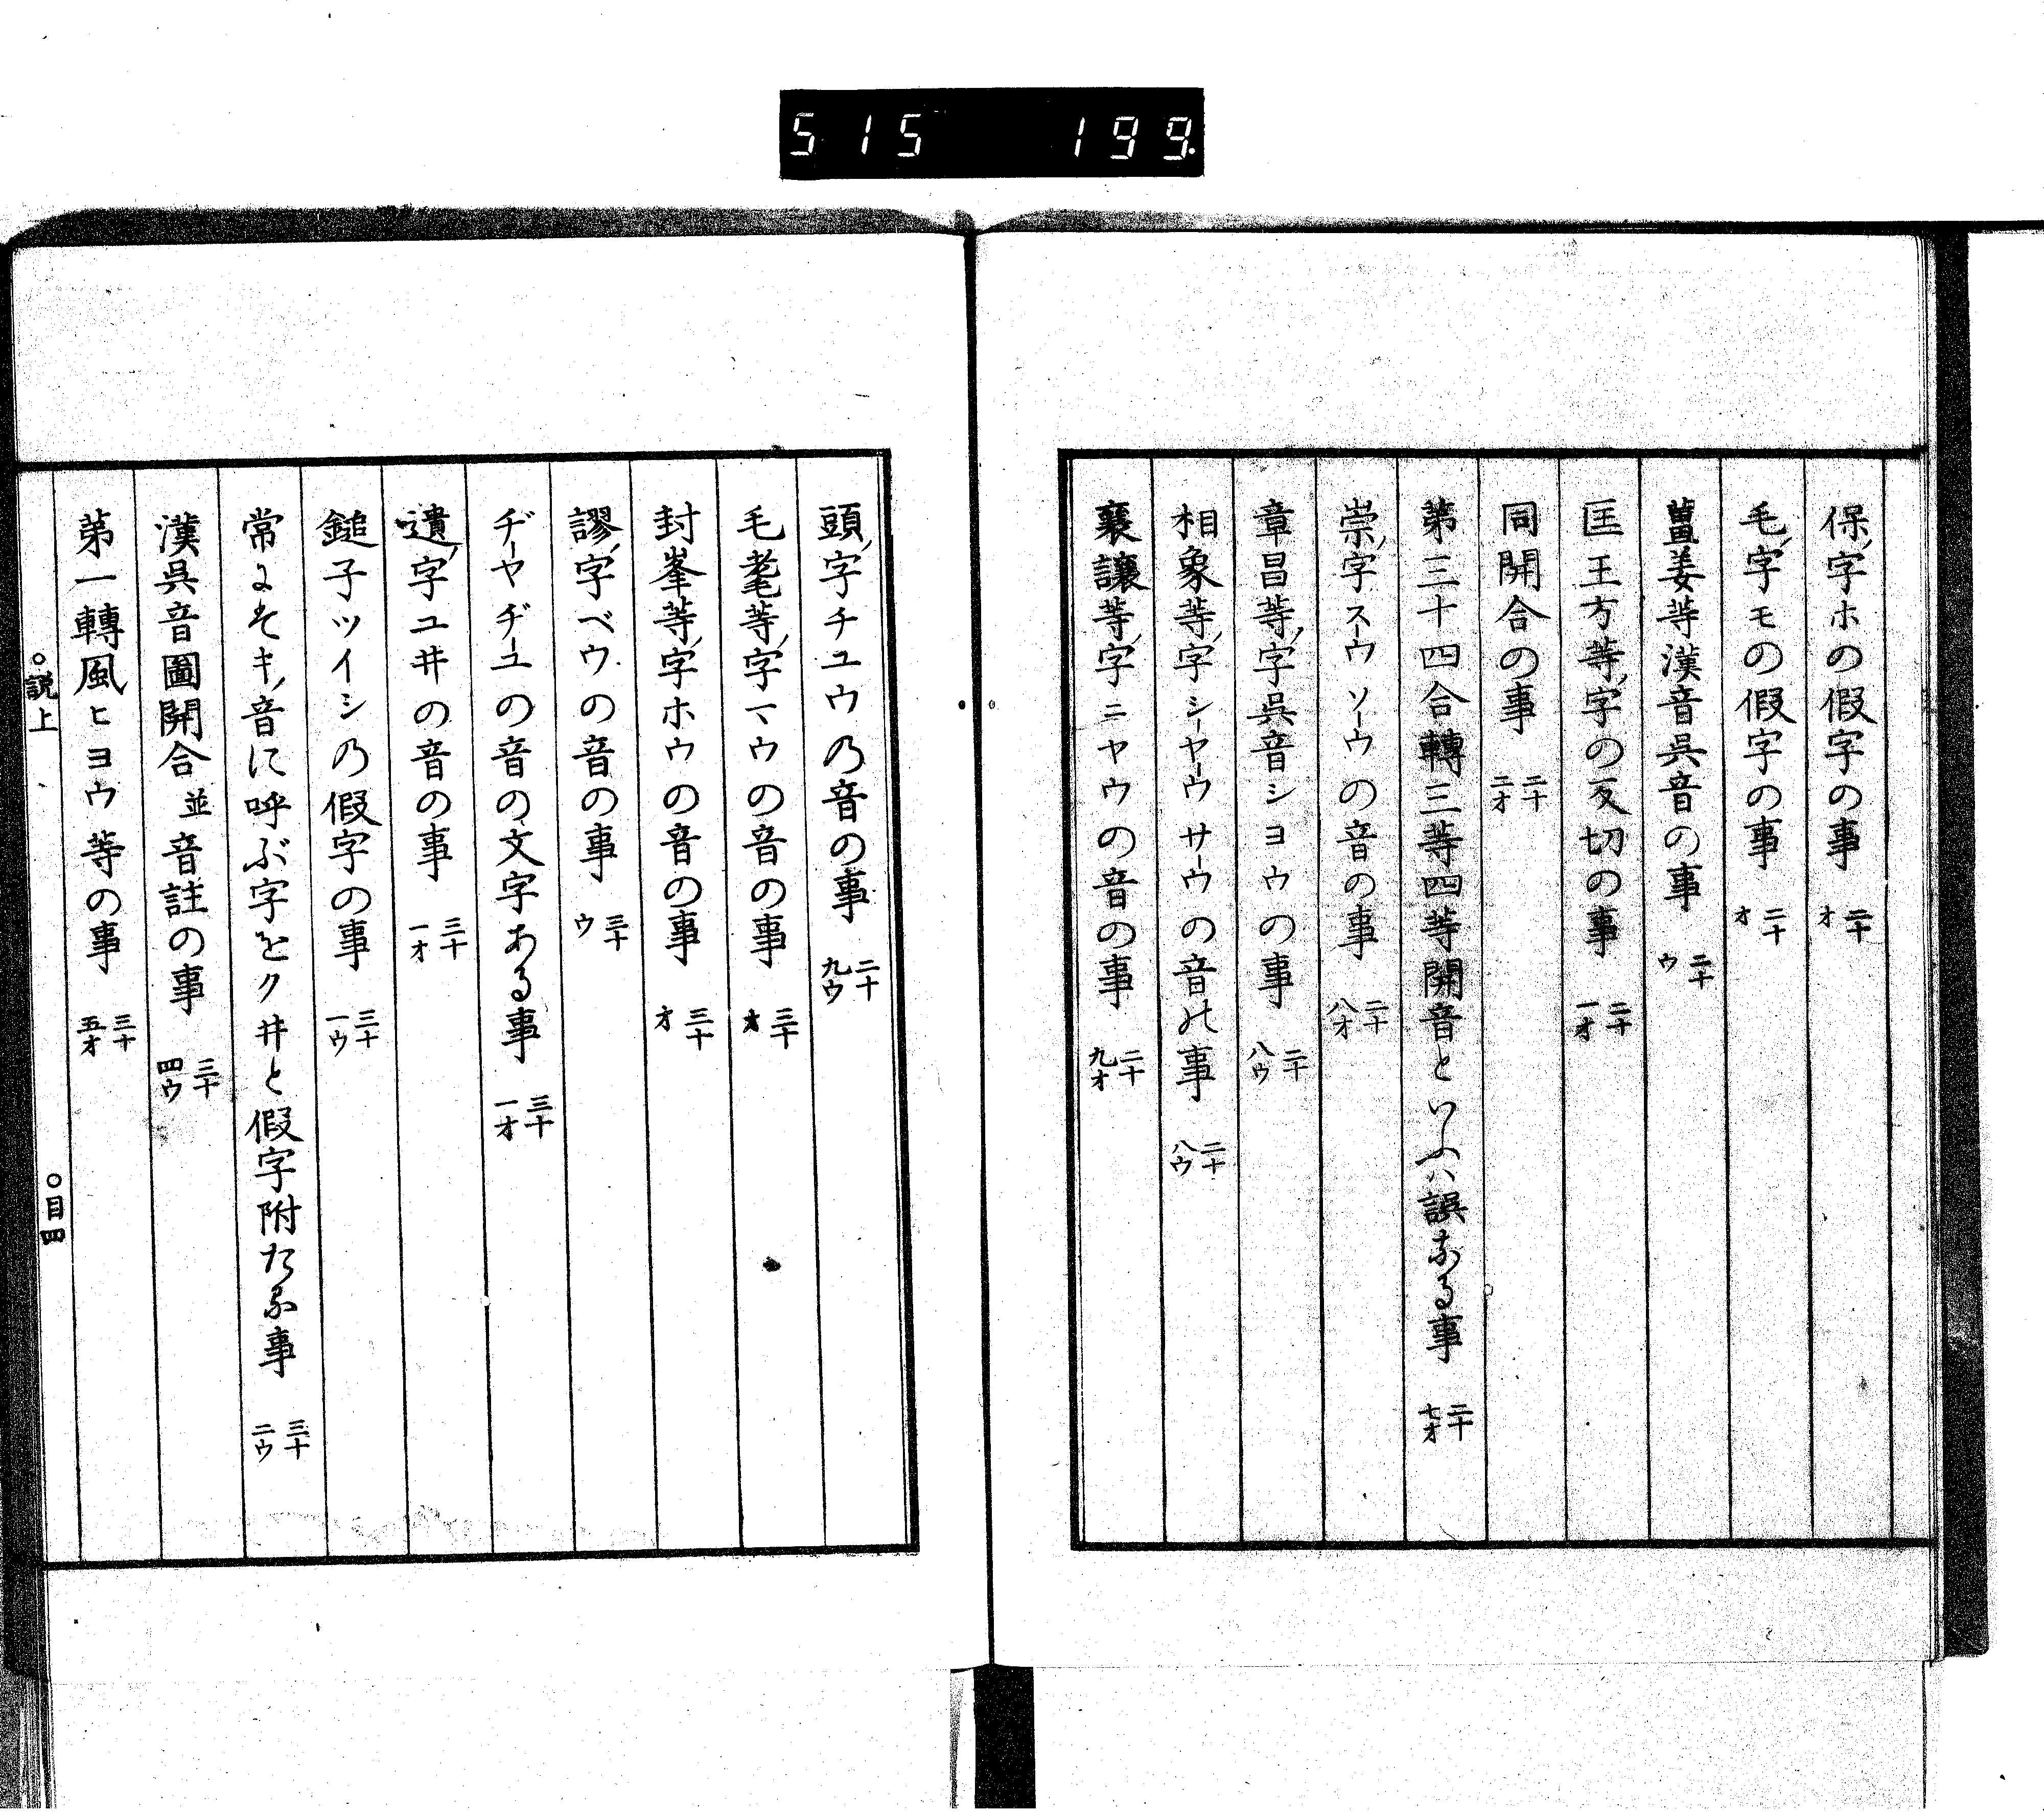 515 199.
保ノ字ホの假字の事 二十オ
毛ノ字モの假字の事 二十オ
薑姜等漢音呉音の事 二十ウ
匡王方等ノ字の反切の事 二十一オ
同開合の事 二十二オ
第三十四合轉三等四等開音といふハ誤なる事 二十七オ
崇ノ字スーウソーウの音の事 二十八オ
章昌等ノ字呉音シヨウの事 二十八ウ
相象等ノ字シーヤーウサーウの音の事 二十八ウ
襄讓等ノ字ニヤウの音の事 二十九オ
頭ノ字チユウの音の事 二十九ウ
毛耄等ノ字マウの音の事 三十オ
封峯等ノ字ホウの音の事 三十オ
謬ノ字ベウの音の事 三十ウ
ヂーヤヂーユの音の文字ある事 三十一オ
遺ノ字ユヰの音の事 三十一オ
鎚子ツイシの假字の事 三十一ウ
常にそキノ音に呼ぶ字をクヰと假字附たる事 三十二ウ
漢呉音圖開合並音註の事 三十四ウ
第一轉風ヒヨウ等の事 三十五オ
○説上 ○目四